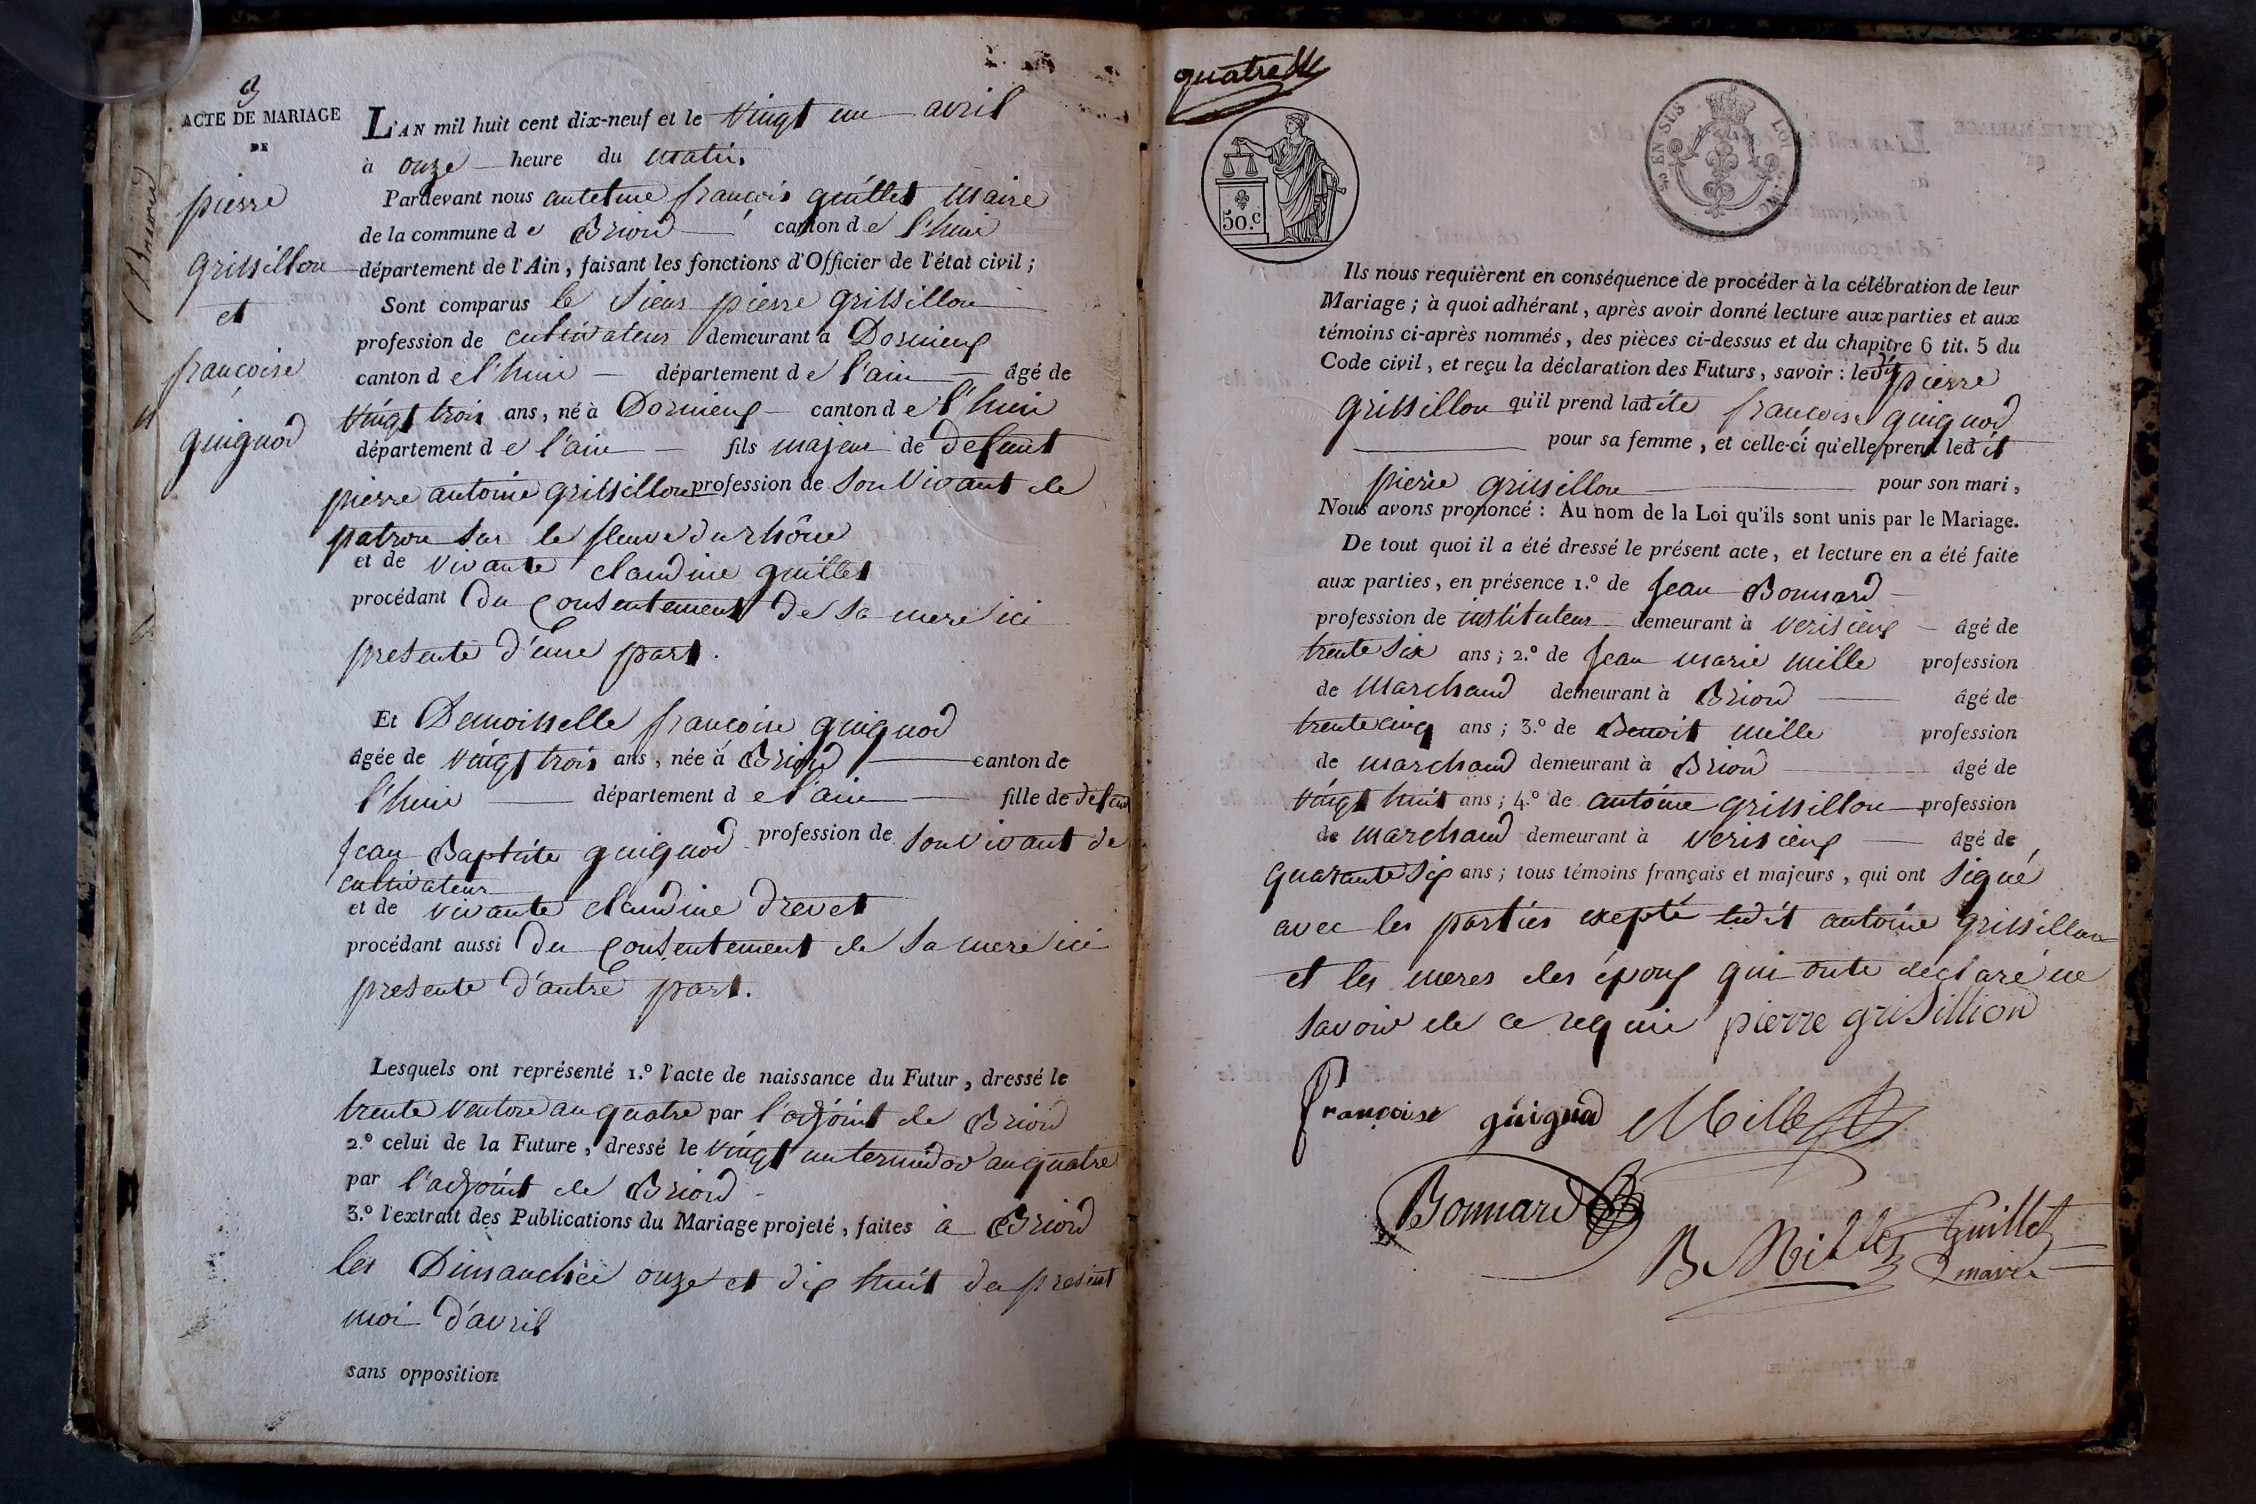 3
ACTE DE MARIAGE
DE
pierre
grissillon
et
françoise
guignod
L'AN mil huit cent dix-neuf et le vingt un avril
à onze heure du matin.
Pardevant nous antelme françois guillet Maire
de la commune de Briord canton de l'huis
département de l'Ain, faisant les fonctions d'Officier de l'état civil;
Sont comparus le sieur pierre grissillon
profession de cultivateur demeurant à Dornieux
canton de l'huis département de l'ain âgé de
vingt trois ans, né à Dornieux canton de l'huis
département de l'ain fils majeur de defunt
pierre antoine grissillon profession de son vivant de
patron sur le fleuve du rhône
et de vivante claudine guillet
procédant du consentement de sa mere ici
presente d'une part.
Et Demoisselle françoise guignod
âgée de vingt trois ans, née à Briord canton de
l'huis département de l'ain fille de defunt
Jean Baptiste guignod profession de son vivant de
cultivateur
et de vivante claudine drevet
procédant aussi du consentement de sa mere ici
presente d'autre part.
Lesquels ont représenté 1.º l'acte de naissance du Futur, dressé le
trente ventose an quatre par l'adjoint de Briord
2.º celui de la Future, dressé le vingt un termidor an quatre
par l'adjoint de Briord
3.º l'extrait des Publications du Mariage projeté, faites à Briord
les Dimanches onze et dix huit du present
moi d'avril
sans opposition
quatre
50.c
EN SUS
LOI
Ils nous requièrent en conséquence de procéder à la célébration de leur
Mariage; à quoi adhérant, après avoir donné lecture aux parties et aux
témoins ci-après nommés, des pièces ci-dessus et du chapitre 6 tit. 5 du
Code civil, et reçu la déclaration des Futurs, savoir : ledit pierre
grissillon qu'il prend ladite françoise guignod
pour sa femme, et celle-ci qu'elle prend ledit
pierre grissillon pour son mari,
Nous avons prononcé : Au nom de la Loi qu'ils sont unis par le Mariage.
De tout quoi il a été dressé le présent acte, et lecture en a été faite
aux parties, en présence 1.º de Jean Bonnard
profession de instituteur demeurant à verisieux âgé de
trente six ans; 2.º de Jean marie mille profession
de Marchand demeurant à Briord âgé de
trente cinq ans; 3.º de Benoit mille profession
de marchand demeurant à Briord âgé de
vingt huit ans; 4.º de antoine grissillon profession
de marchand demeurant à verisieux âgé de
quarante six ans; tous témoins français et majeurs, qui ont signé
avec les parties exepté ledit antoine grissillon
et les meres des époux qui onte declaré ne
savoir de ce requie pierre grisillion
françoise guignod Mille
Bonnard
B Mille Guillet
maire